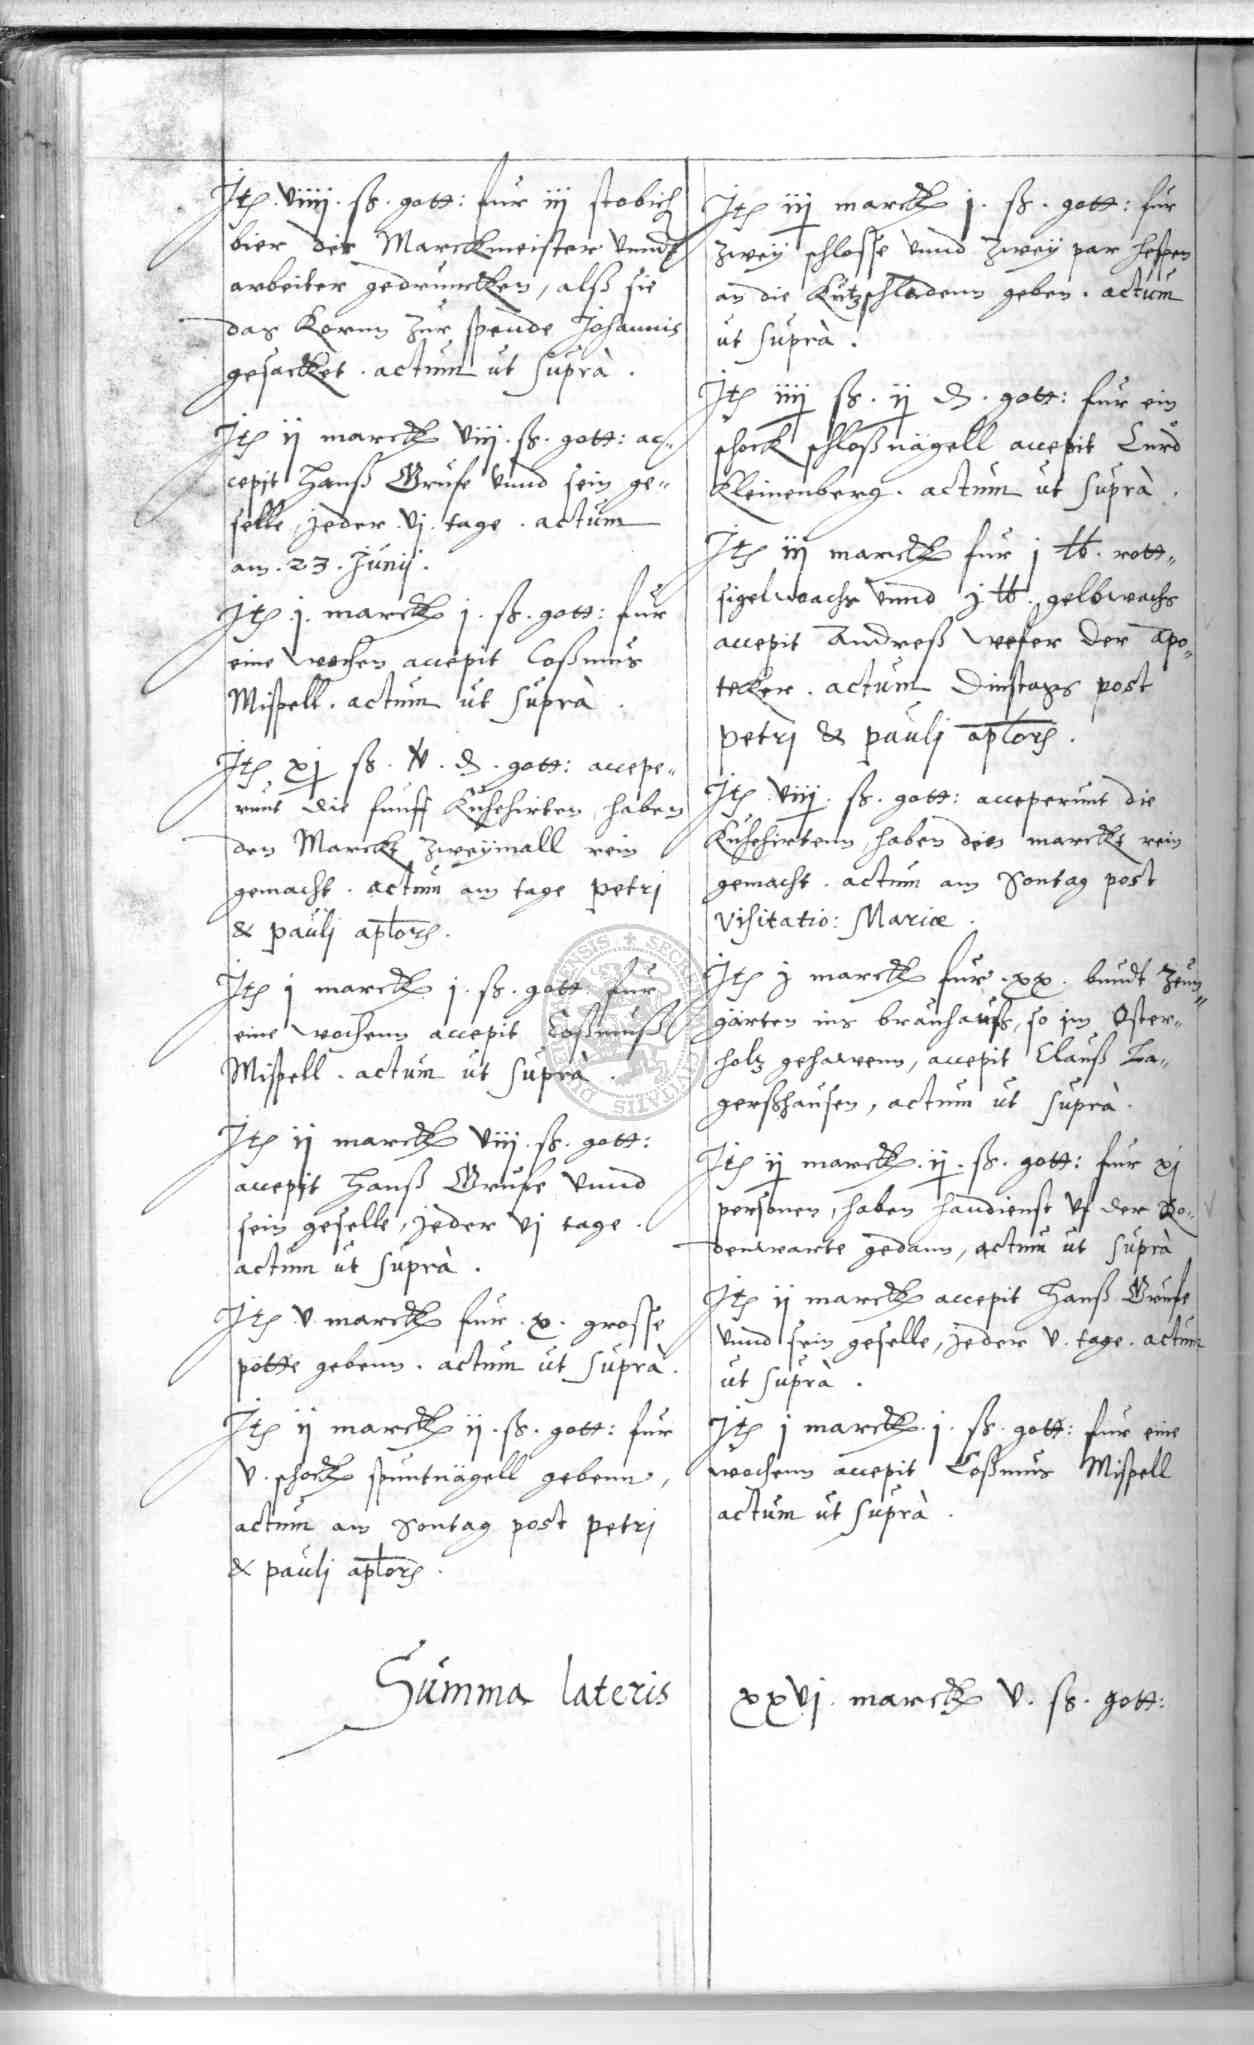 Jtem viiij. ß. gott: fur iij stobich
bier die Marckmeister vnndt
arbeiter gedrunckken, alß sie
das Kornn zur spende Johannis
gesackket. actum ut suprà.
Jtem ij marckh viij. ß. gott: ac-
cepit Hanß Grufe vnnd sein ge-
selle, jeder vj. tage. actum
am. 23. Junij.
Jtem j. marckh j. ß. gott: fur
eine wochen accepit Coßmus
Mispell. actum ut suprà.
Jtem xj ß. v. d. gott: accepe-
runt die funff Kuhehirten, haben
den Marckt zweymall rein
gemacht. actum am tage petri
& pauli aplorum.
Jtem j marckh j. ß. gott: fur
eine wochenn accepit Coßmuß
Mispell. actum ut suprà.
Jtem ij marckh viij. ß. gott:
accepit Hanß Grufe vnnd
sein geselle, jeder vj tage.
actum ut suprà.
Jtem v marckh fur. x. grosse
potte gebenn. actum ut suprà.
Jtem ij marckh ij. ß. gott: fur
v. schockh spuntnägell gebenn,
actum am Sontag post petri
& pauli aplorum.
Jtem iij marckh j. ß. gott: fur
zweÿ schlosse vnnd zweÿ par hespen
an die geben. actum
ut suprà.
Jtem iiij ß. ij d. gott: fur ein
schock schloßnägell accepit Curd
Kleinenberg. actum ut suprà.
Jtem iij marckh fur j lb. rott-
sigelwachs vnnd j lb. gelbwachs
accepit Andreß wefer der apo-
tecker. actum Dinstags post
petri & pauli aplorum.
Jtem viiij. ß. gott: acceperunt die
Kuhehirtenn, haben den marckt rein
gemacht. actum am Sontag post
visitatio: Mariæ.
Jtem j marckh fur. xx. bundt zeun-
gärten ins brauhauß, so im Oster-
holtz gehawenn, accepit Clauß La-
gerßhausen, actum ut suprà.
Jtem ij marckh. ij. ß. gott: fur xj
personen, haben handienst vf der Ro-
denwarte gedann, actum ut suprà
Jtem ij marckh accepit Hanß Grufe
vnnd sein geselle, jeder v. tage. actum
ut suprà.
Jtem j marckh. j. ß. gott: fur eine
wochenn accepit Coßmus Mispell
actum ut suprà.
Summa lateris xxvj. marckh v. ß. gott: